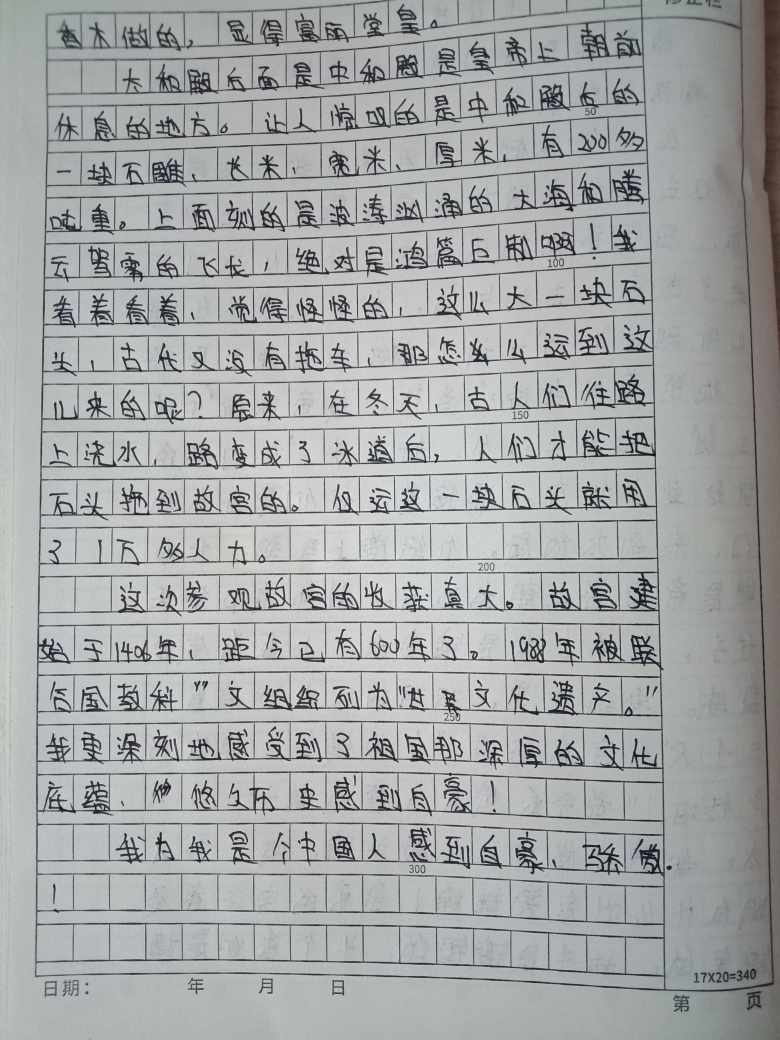 香木做的，显得富丽堂皇。
太和殿后面是中和殿是皇帝上朝前
休息的地方。让人惊叹的是中和殿后的
50
一块石雕、长米，宽米、厚米，有200多
吨重。上面刻的是波涛汹涌的大海和腾
云驾雾的飞龙，绝对是鸿篇巨制啊！我
100
看着看着、觉得怪怪的，这么大一块石
头，古代又没有拖车，那怎么么运到这
儿来的呢？原来，在冬天，古人们往路
150
上浇水，路变成了冰道后，人们才能把
石头拖到故宫的。仅运这一块石头就用
了1万多人力。
200
这次参观故宫的收获真大。故宫建
始于1406年，距今已有600年了。1988年被联
合国教科"文组织列为"世界文化遗产。"
250
我更深刻地感受到了祖国那深厚的文化
底蕴、悠久历史感到自豪！
我为我是个中国人感到自豪、骄傲.
300
！
17X20=340
日期： 年 月 日
第 页